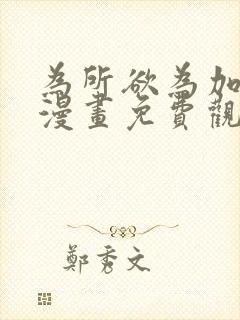 為所欲為加
漫畫免費觀
鄭秀文